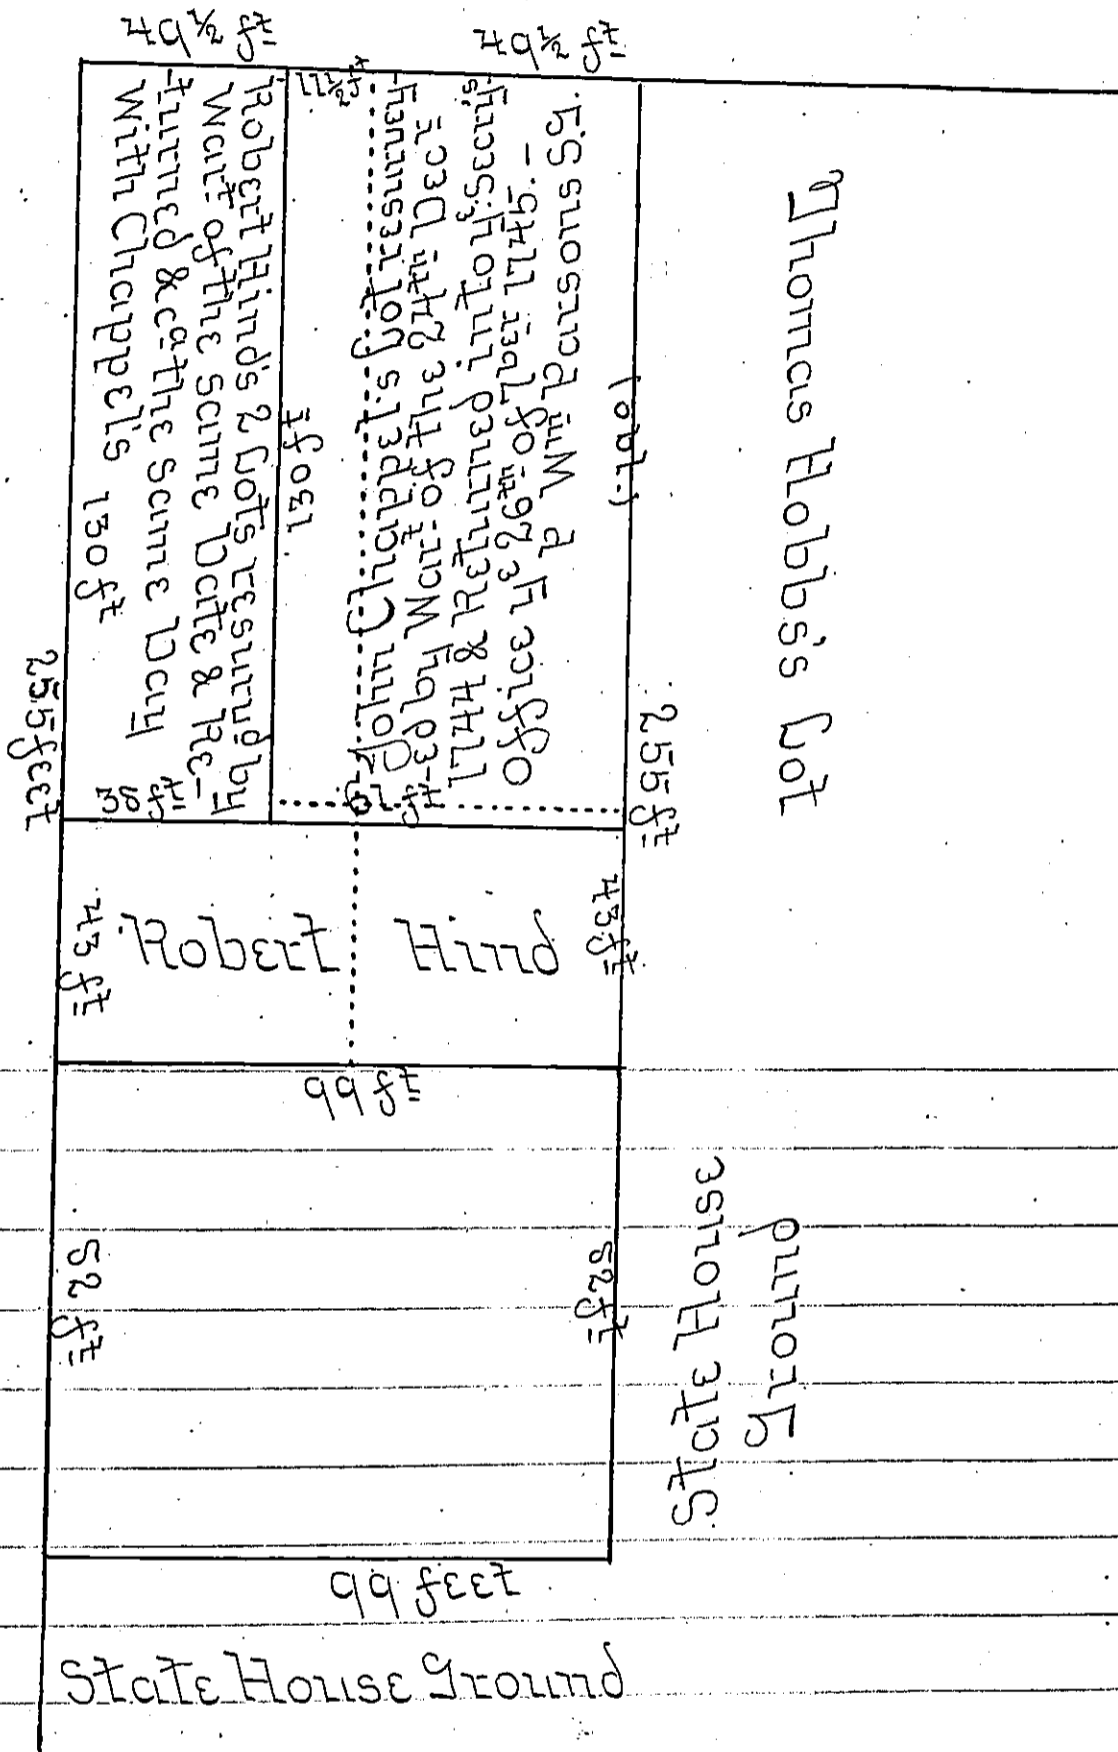 49½ ft
49½ ft
11½ ft
Robert Hind's 2 Lots resurv'd by
War.t of the same Date & Re-
turned & c.a the same Day
With Chappel's 130 ft
130 ft
John Chappel's Lot resurvey-
ed by War.t of the 24th Decr
1744 & Returned into ye Secry's
office ye 26th of Febr 1745. -
G Parsons P
(obl.)
255 ft
255 feet
38 ft
61 ft
Thomas Hobbs's Lot
43 ft
Robert Hind
43 ft
99 ft
52 ft
52 ft
State House
Ground
99 feet
State House Ground